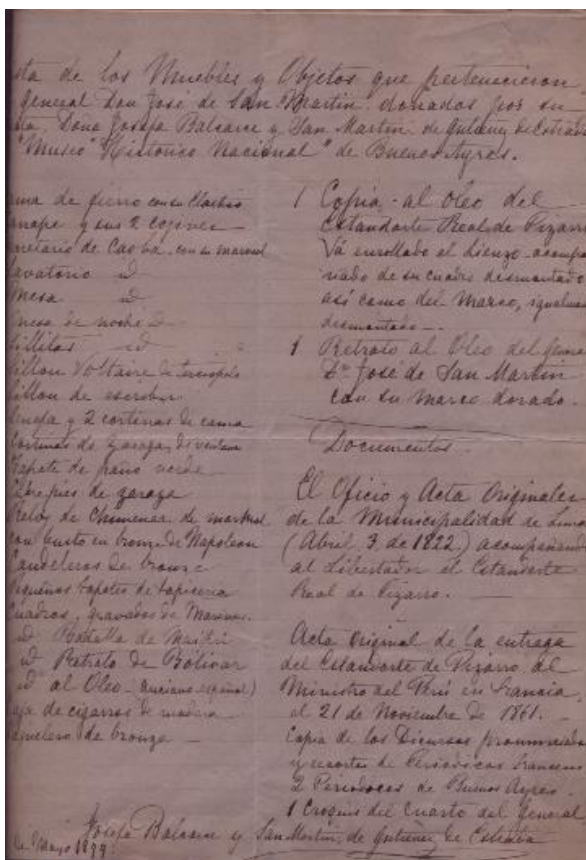 sta de los Muebles y Objetos que pertenecieron
general Don José de San Martin donados por su
Doña Josefa Balcarce y San Martin de Gutierrez de Estrada
"Museo Historico Nacional" de Buenos Ayres.
ama de fierro con su
anapé y sus 2 cojines
cretario de Caoba, con su marmol
lavatorio id
Mesa id
mesa de noche id
sillitas id
sillon Voltaire de terciopelo
sillon de escribir
y 2 cortinas de cama
Cortinas de zaraza, de ventana
Tapete de paño verde
pies de zaraza
Reloj de Chimenea de marmol
con busto en bronze de Napoleon
Candeleros de bronze
Pequeños tapetes de tapiceria
Cuadros, gravados de Marinas.
id Batalla de Maipú
id Retrato de Bólivar
id al Oleo (anciano español)
aja de cigarros de madera
de bronze
1 Copia al Oleo del
Estandarte Real de Pizarro
Vá enrollado el lienzo acompa
ñado de su cuadro desmontado
así como del Marco, igualmen
desmontado.
1 Retrato al Oleo del Gene
Dn José de San Martin
con su marco dorado.
Documentos.
El Oficio y Acta Originales
de la Municipalidad de Lima
(Abril 3 de 1822) acompañando
al Libertador el Estandarte
Real de Pizarro.
Acta Original de la entrega
del Estandarte de Pizarro al
Ministro del Perú en Francia
el 21 de Noviembre de 1861.
Copia de los Discursos pronunciados
y recortes de Periodicos franceses
2 Periodocos de Buenos Ayres
1 Croquis del Cuarto del General
Josefa Balcarce y San Martin de Gutierrez de Estrada
de Mayo 1899.